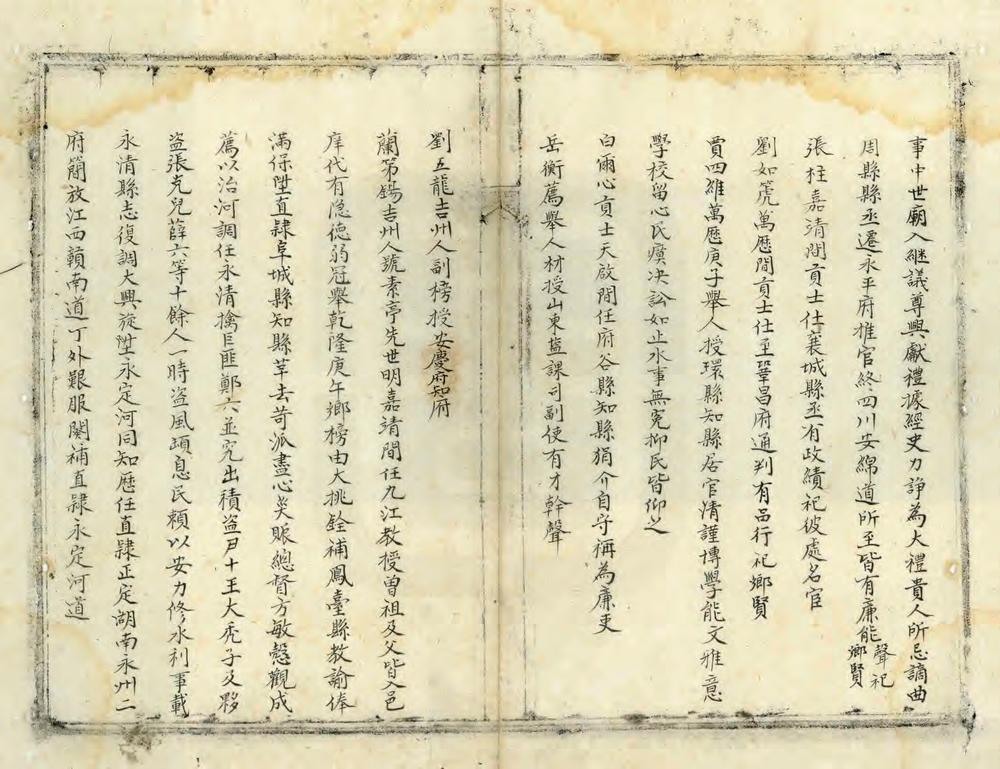 事中世廟入繼議尊興獻禮據經史力諍為大禮貴人所忌謫曲
周縣縣丞遷永平府推官終四川安綿道所至皆有廉能聲祀鄉賢
張柱嘉清間貢士仕襄城縣丞有政績祀彼處名官
劉如箎萬歷間貢士仕至鞏昌府通判有品行祀鄉賢
賈四維萬歷庚子舉人授環縣知縣居官清謹博學能文雅意
學校留心民瘼決訟如止水事無冤抑民皆仰之
白爾心貢士天啟間任府谷縣知縣狷介自守稱為廉吏
岳衡薦舉人材授山東塩課司副使有才幹聲
劉五龍吉州人副榜授安慶府知府
蘭第錫吉州人號素亭先世明嘉清間任九江教授曾祖及父皆入邑
庠代有隐德弱冠舉乾隆庚午鄉榜由大挑銓補鳳臺縣教諭俸
滿保陞直隸阜城縣知縣革去苛派盡心災賑總督方敏慤觀成
薦以治河調任永清擒巨匪鄭六並究出積盜尹十王大禿子及夥
盜張克兒薛六等十餘人一時盜風頓息民賴以安力修水利事載
永清縣志復調大興旋陞永定河同知歷任直隸正定湖南永州二
府簡放江西贛南道丁外艱服闋補直隸永定河道